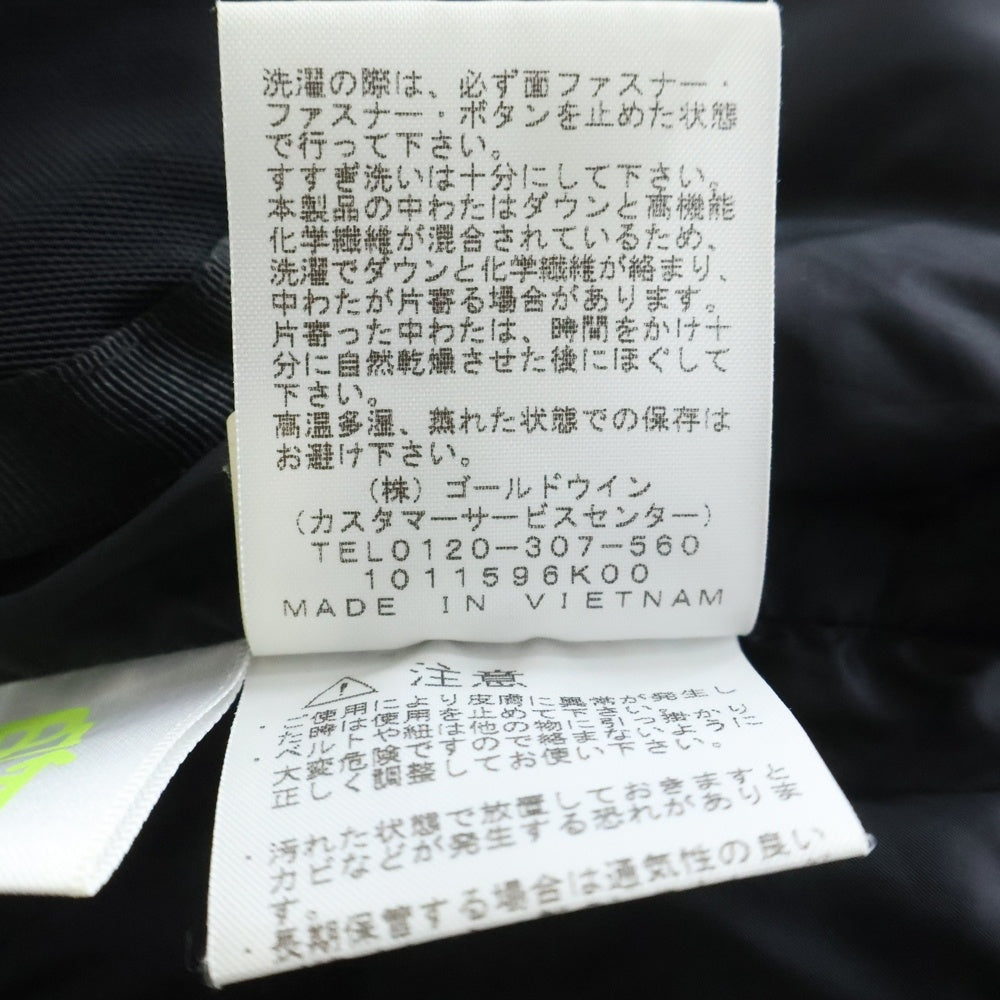 洗濯の際は、必ず面ファスナー・
ファスナー・ボタンを止めた状態
で行って下さい。
すすぎ洗いは十分にして下さい。
本製品の中わたはダウンと高機能
化学繊維が混合されているため、
洗濯でダウンと化学繊維が絡まり、
中わたが片寄る場合があります。
片寄った中わたは、時間をかけ十
分に自然乾燥させた後にほぐして
下さい。
高温多湿、蒸れた状態での保存は
お避け下さい。
(株)ゴールドウイン
(カスタマーサービスセンター)
TEL0120-307-560
1011596K00
MADE IN VIETNAM
注意
・この使用により皮膚に異常が発生し
た時は
ベルトや紐
大変危険
正しく調整してお使い下さい。
・汚れた状態で放置しておきますと
カビなどが発生する恐れがありま
す。
・長期保管する場合は通気性の良い